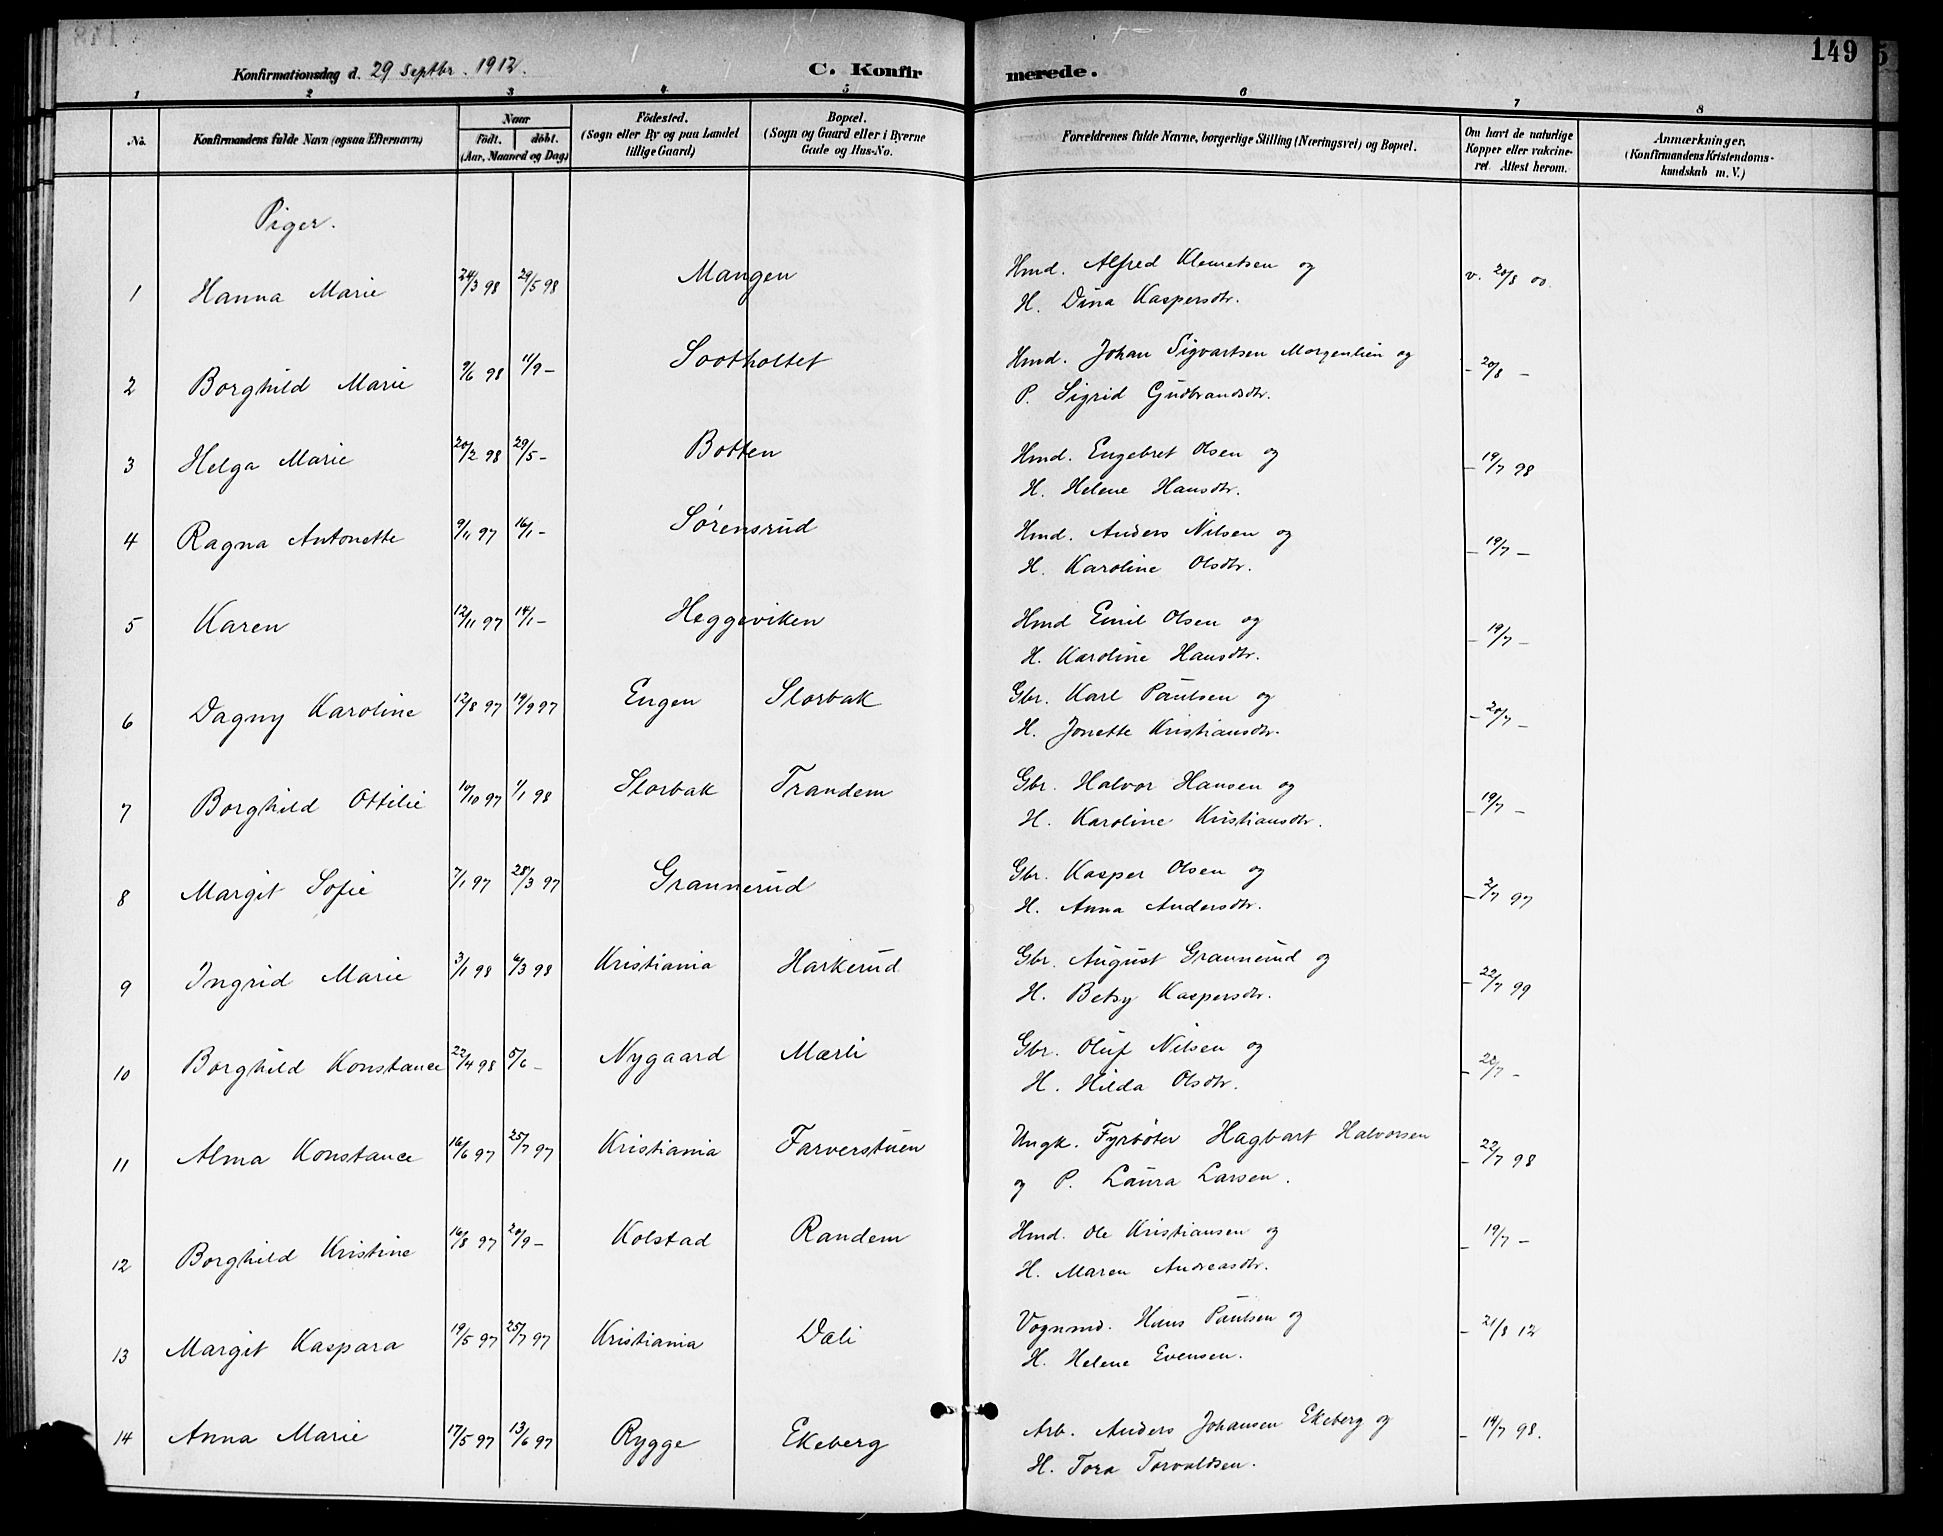 149
Konfirmationsdag d. 29 Septbr. 1912. C. Konfirmerede.
1 2 3 4 5 6 7 8
No. Konfirmandens fulde Navn (ogsaa Efternavn) Naar født. døbt. (Aar, Maaned og Dag) Fødested. (Sogn eller By og paa Landet tillige Gaard) Bopæl. (Sogn og Gaard eller i Byerne Gade og Hus-No. Forældrenes fulde Navne, borgerlige Stilling (Næringsvei) og Bopæl. Om havt de naturlige Kopper eller vakcineret. Attest herom. Anmærkninger. (Konfirmandens Kristendomskundskab m. V.)
Piger.
1 Hanna Marie 24/3 98 29/5 98 Mangen Hmd. Alfred Klemetsen og v. 20/8 00
H. Dina Kaspersdtr.
2 Borghild Marie 9/6 98 11/9 – Sootholtet Hmd. Johan Sigvartsen Morgenlien og – 20/8 –
P. Sigrid Gudbrandsdtr.
3 Helga Marie 20/2 98 29/5 – Botten Hmd. Engebret Olsen og – 19/7 98
H. Helene Hansdtr.
4 Ragna Antonette 9/11 97 16/1 – Sørensrud Hmd. Anders Nilsen og – 19/7 –
H. Karoline Olsdtr.
5 Karen 12/11 97 14/1 – Heggeviken Hmd Emil Olsen og – 19/7 –
H. Karoline Hansdtr.
6 Dagny Karoline 12/8 97 19/9 97 Engen Slorbak Gbr. Karl Paulsen og – 20/7 –
H. Jonette Kristiansdtr.
7 Borghild Ottilie 10/10 97 1/1 98 Slorbak Trandem Gbr. Halvor Hansen og – 19/7 –
H. Karoline Kristiansdtr.
8 Margit Sofie 7/1 97 28/3 97 Grannerud Gbr. Kasper Olsen og – 2/7 97
H. Anna Andersdtr.
9 Ingrid Marie 3/1 98 6/3 98 Kristiania Harkerud Gbr. August Grannerud og – 22/7 99
H. Betsy Kaspersdtr.
10 Borghild Konstance 22/4 98 5/6 – Nygaard Mærli Gbr. Oluf Nilsen og – 22/7 –
H. Hilda Olsdtr.
11 Alma Konstance 16/6 97 25/7 97 Kristiania Farverstuen Ungk. Fyrbøter Hagbart Halvorsen – 22/7 98
og P. Laura Larsen.
12 Borghild Kristine 16/8 97 20/9 – Kolstad Randem Hmd. Ole Kristiansen og – 19/7 –
H. Maren Andreasdtr.
13 Margit Kaspara 19/5 97 25/7 97 Kristiania Dæli Vognmd. Hans Paulsen og – 21/8 12
H. Helene Evensen.
14 Anna Marie 17/5 97 13/6 97 Rygge Ekeberg Arb. Anders Johansen Ekeberg og – 14/7 98.
H. Tora Torvaldsen.